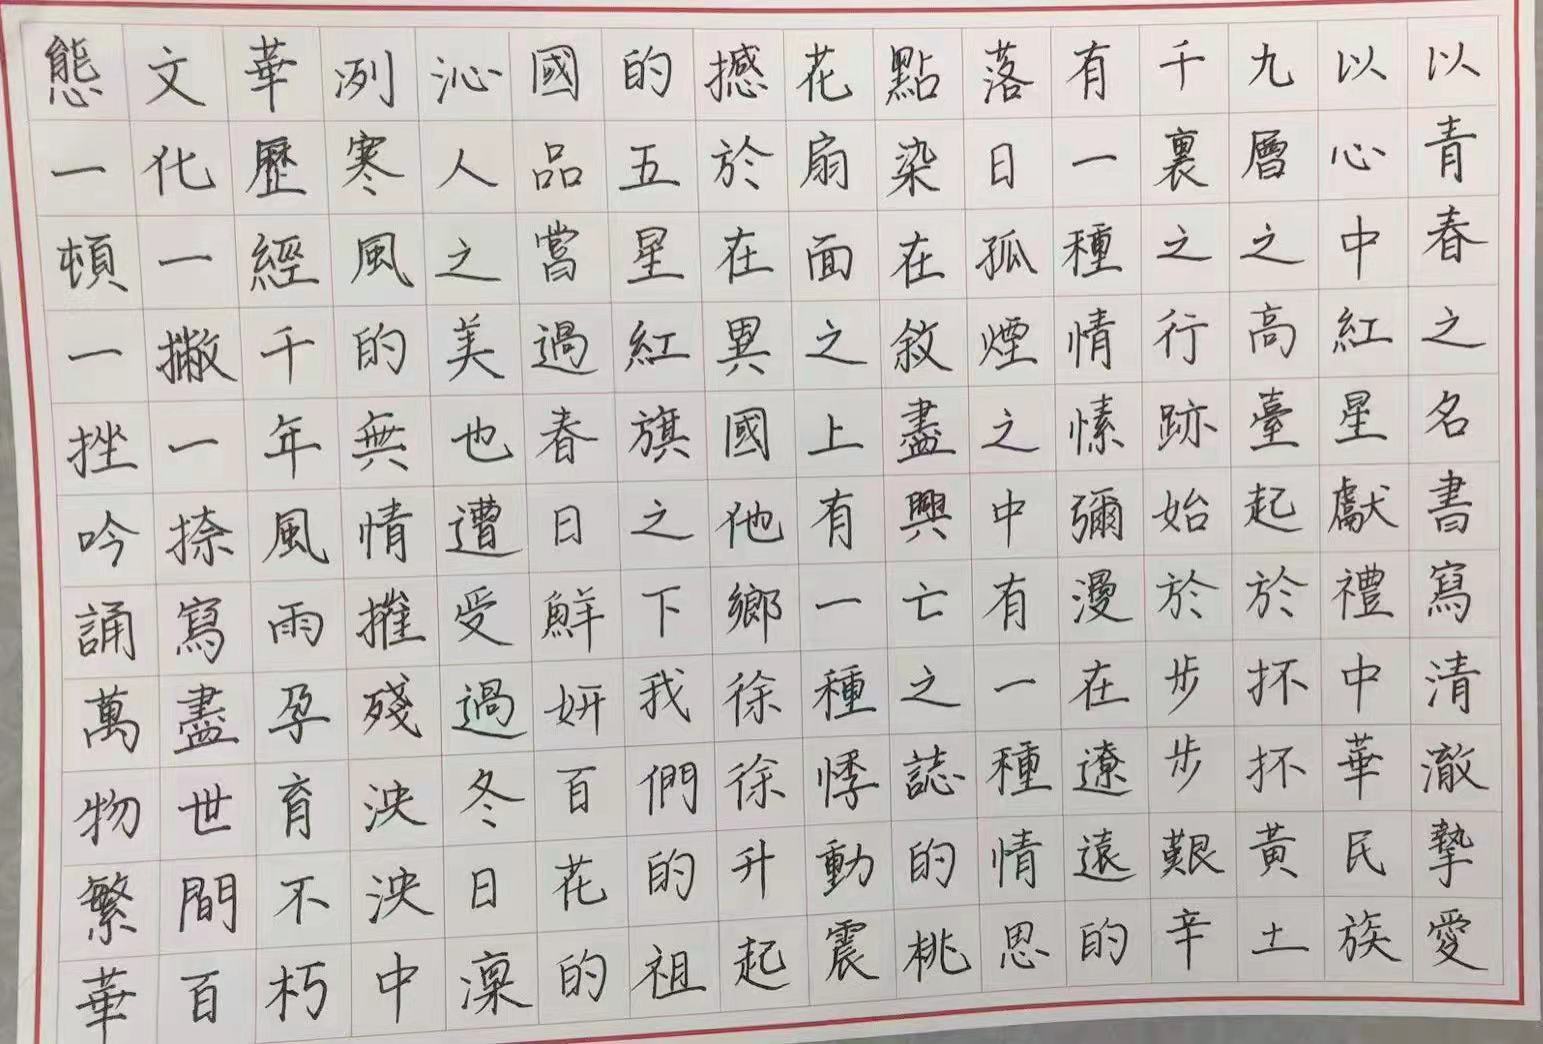 以青春之名書寫清澈摯愛
以心中紅星獻禮中華民族
九層之高臺起於抔抔黃土
千裏之行跡始於步步艱辛
有一種情愫彌漫在遼遠的
落日孤煙之中有一種情思
點染在敘盡興亡之誌的桃
花扇面之上有一種悸動震
撼於在異國他鄉徐徐升起
的五星紅旗之下我們的祖
國品嘗過春日鮮妍百花的
沁人之美也遭受過冬日凜
冽寒風的無情摧殘泱泱中
華歷經千年風雨孕育不朽
文化一撇一捺寫盡世間百
態一頓一挫吟誦萬物繁華